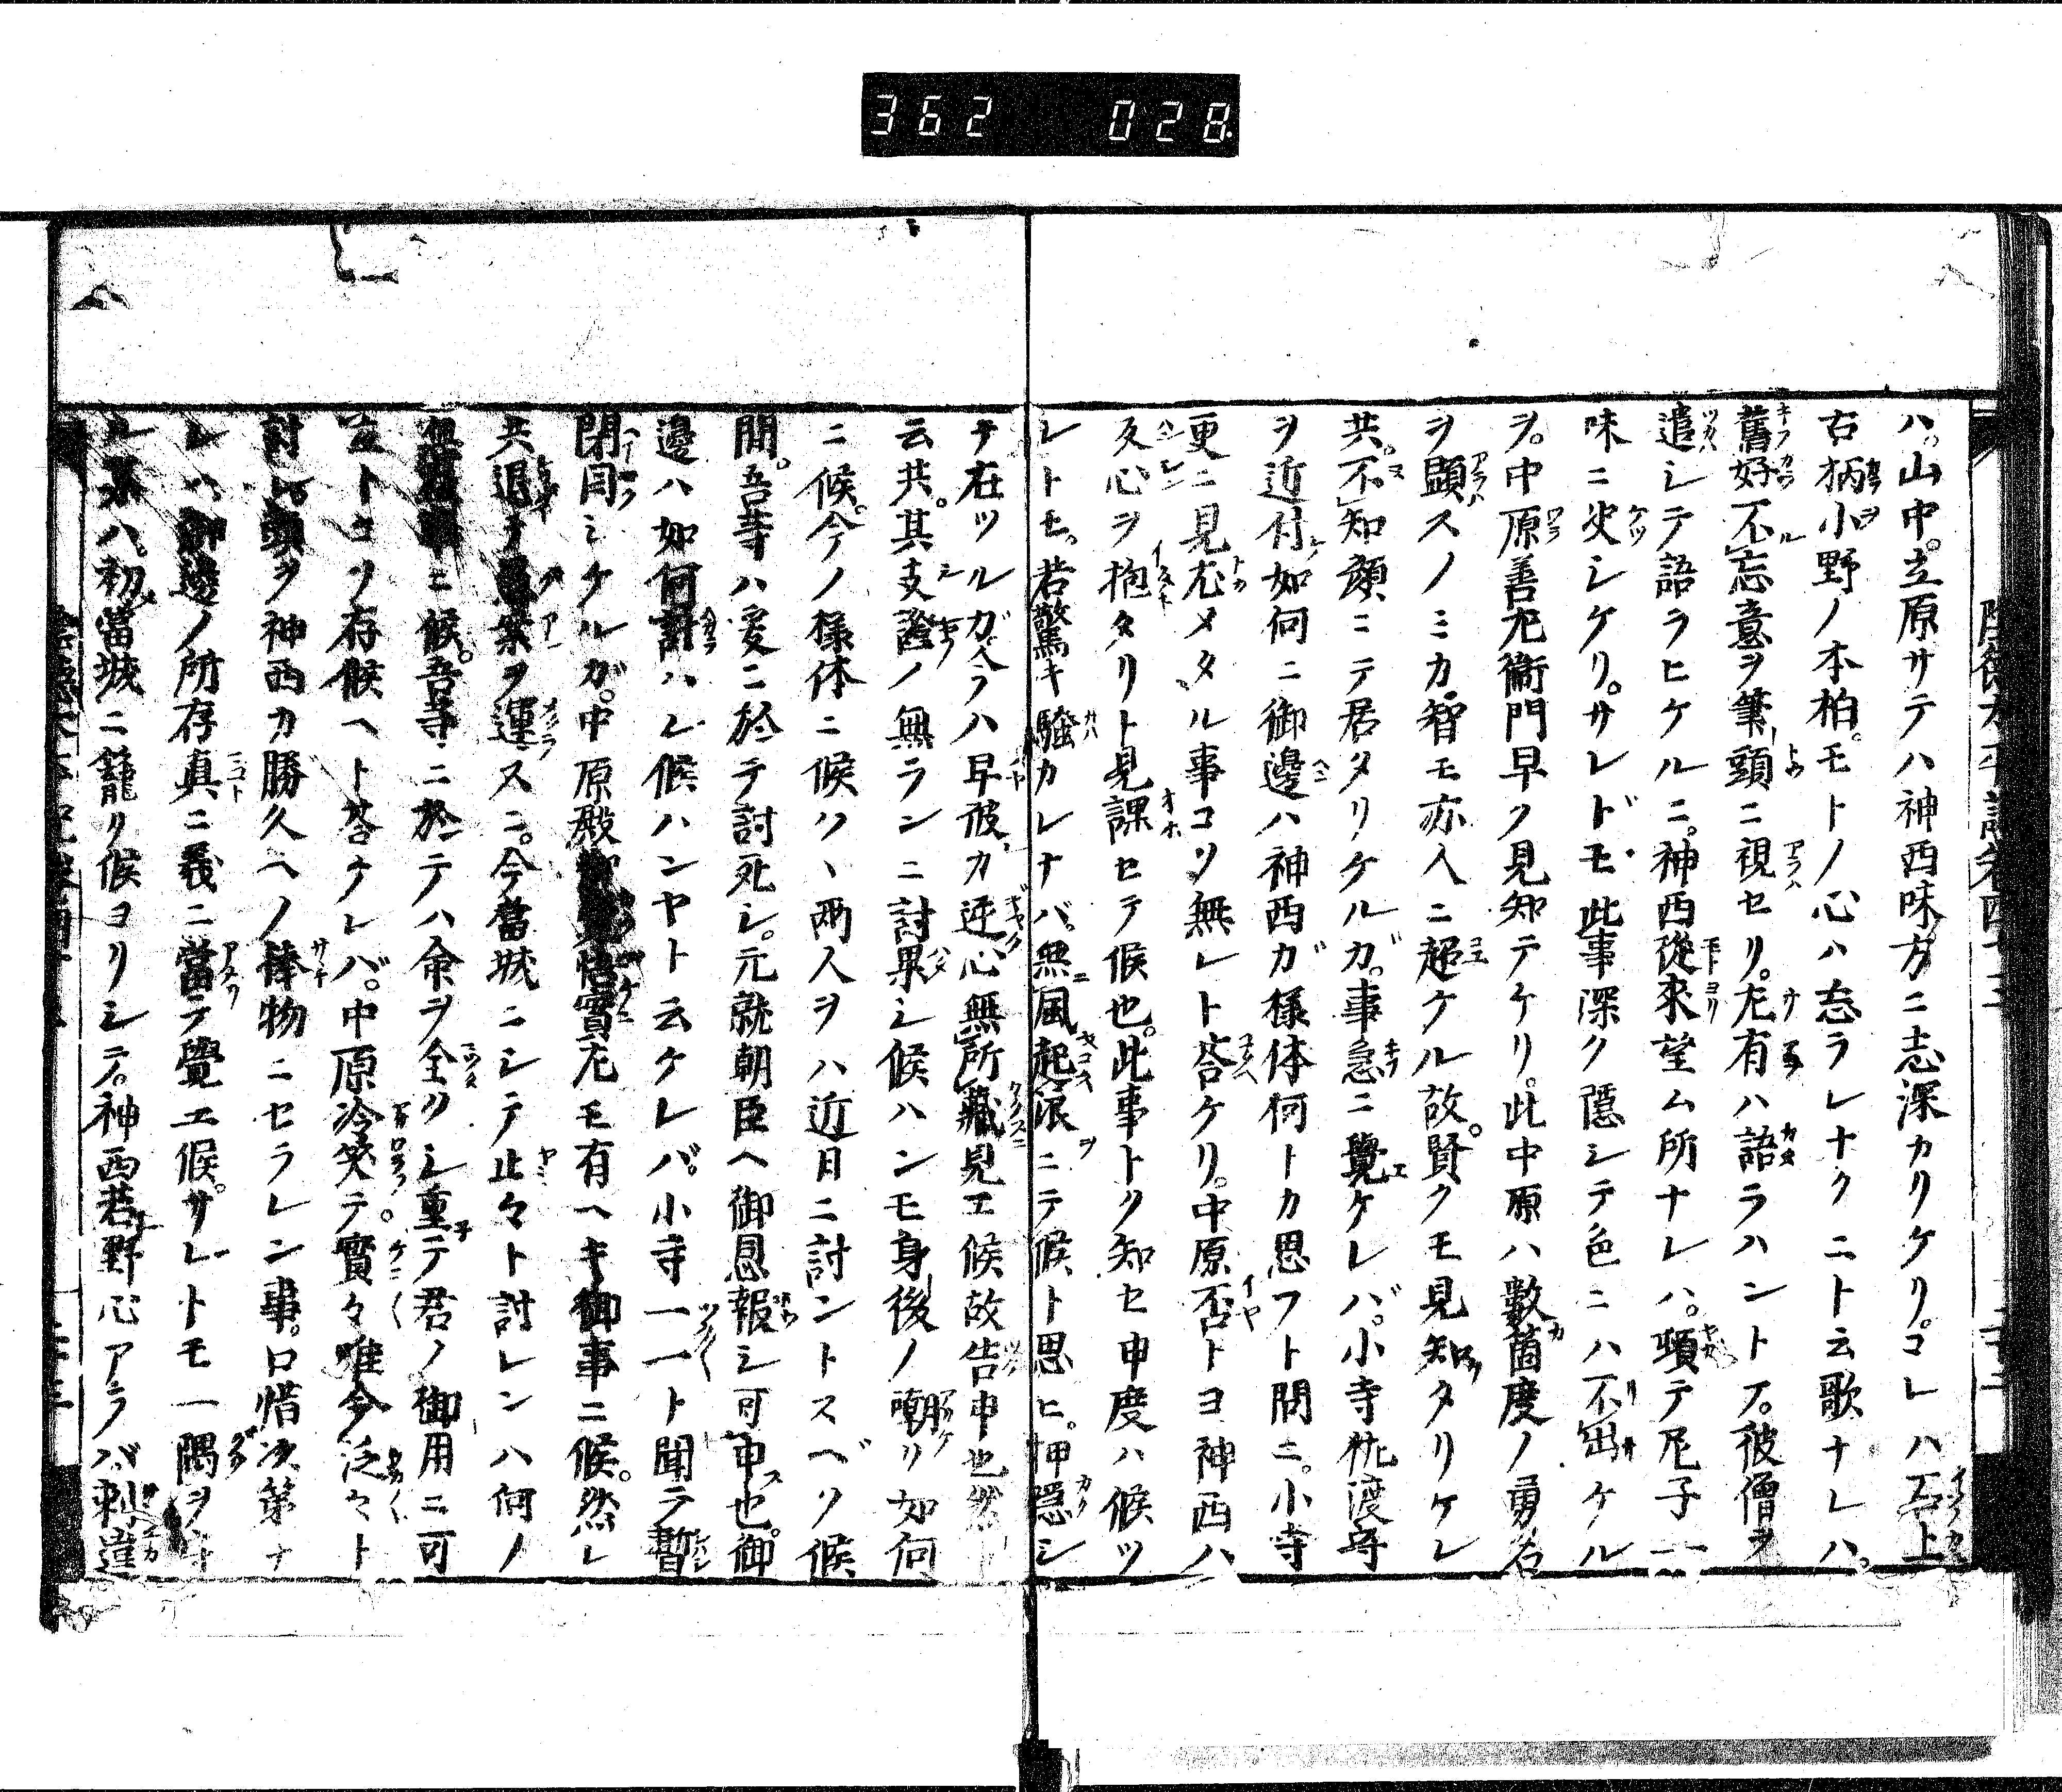 362 028
ハ。山中。立原サテハ神西味方ニ志深カリケリ。コレハ石上
右柄小野ノ本柏。モトノ心ハ忘ラレナクニト云歌ナレハ。
舊好不忘意ヲ筆頭ニ視セリ。左有ハ語ラハントテ。彼僧ヲ
遣シテ語ラヒケルニ。神西從來望ム所ナレハ。頓テ尼子一
味ニ决シケリ。サレドモ此事深ク隱シテ色ニハ不出ケル
ヲ。中原善左衞門早ク見知テケリ。此中原ハ數箇度ノ勇名
ヲ顕スノミカ智モ亦人ニ超ケル故。賢クモ見知タリケレ
共。不知顔ニテ居タリケルガ。事急ニ覺ケレバ。小寺佐渡守
ヲ近付如何ニ御邊ハ神西ガ様体何トカ思フト問ニ。小寺
更ニ見尤メタル事コソ無レト答ケリ。中原否トヨ神西ハ
反心ヲ抱タリト見課セテ候也。此事トク知セ申度ハ候ツ
レトモ。若驚キ騒カレナバ。無風起浪ニテ候ト思ヒ。押隱シ
テ在ツルガ今ハ早彼カ逆心無所藏見エ候故告申也然ト
云共。其支證ノ無ランニ討果シ候ハンモ身後ノ嘲リ如何
ニ候。今ノ様体ニ候ハヽ両人ヲハ近日ニ討ントスベソ候
間。吾等ハ爰ニ於テ討死シ。元就朝臣ヘ御恩報シ可申也。御
邊ハ如何計ハレ候ハンヤト云ケレバ。小寺一一ト聞テ暫
閉目シケルガ。中原殿御覺悟實左モ有ヘキ御事ニ候。然レ
共退テ愚案ヲ運スニ。今當城ニシテ止々ト討レンハ何ノ
ニ候。吾等ニ於テハ命ヲ全クシ重テ君ノ御用ニ可
立トコソ存候ヘト答ケレバ。中原冷笑テ實々唯今泛々ト
討レ。頸ヲ神西カ勝久ヘノ捧物ニセラレン事。口惜次第ナ
レハ。御邊ノ所存真ニ義ニ當テ覺エ候。サレトモ一隅ヲ
レ。某ハ。初當城ニ籠リ候ヨリシテ。神西若野心アラバ刺違